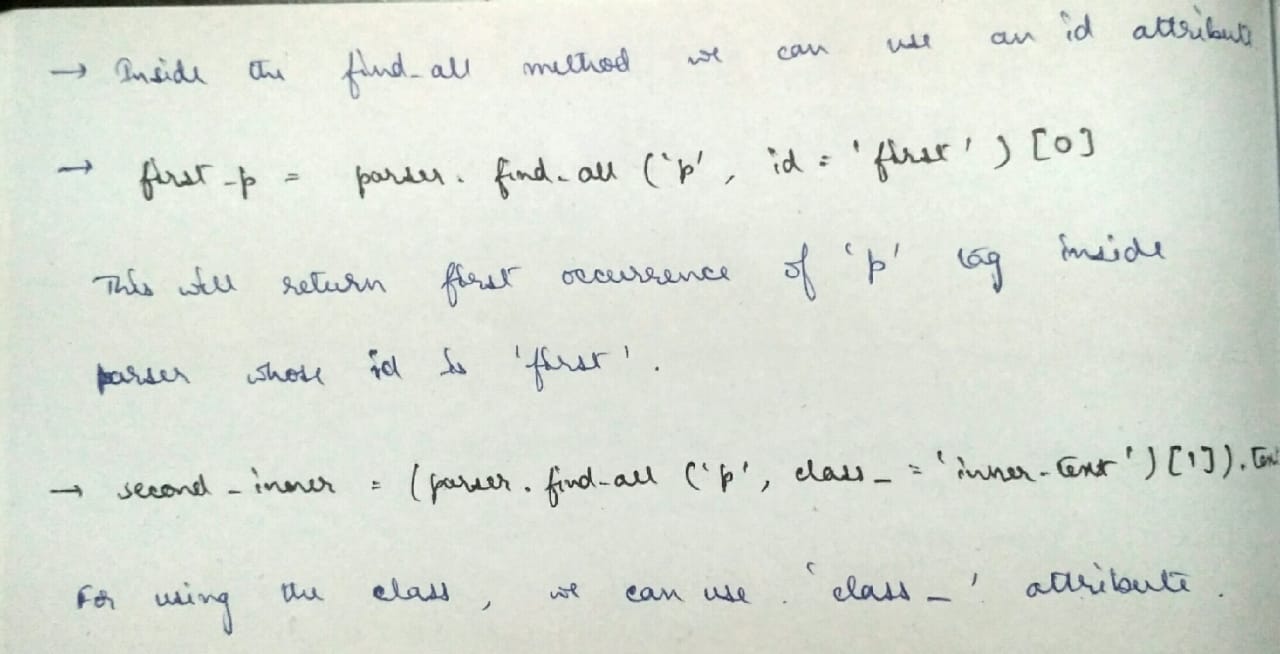 → Inside the find_all method we can use an id attribute
→ first_p = parser.find_all ('p', id = 'first') [0]
This will return first occurrence of 'p' tag inside
parser whose id is 'first'.
→ second_inner = (parser.find_all ('p', class_ = 'inner-text') [1]).
For using the class, we can use 'class_' attribute.